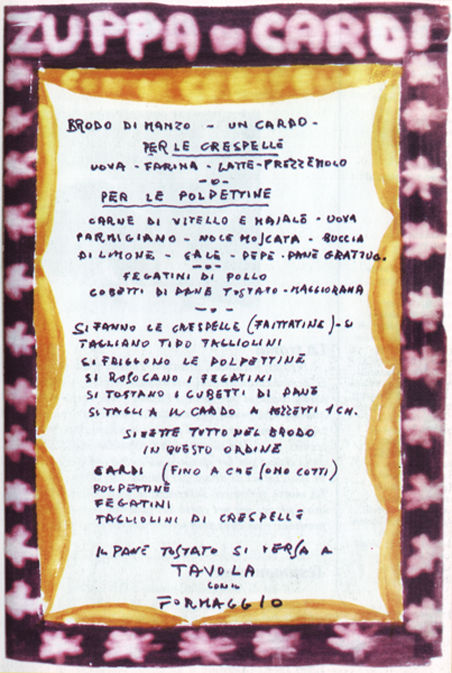 ZUPPA DI CARDI
BRODO DI MANZO - UN CARDO -
PER LE CRESPELLE
UOVA - FARINA - LATTE - PREZZEMOLO
PER LE POLPETTINE
CARNE DI VITELLO E MAIALE - UOVA
PARMIGIANO - NOCE MOSCATA - BUCCIA
DI LIMONE - SALE - PEPE - PANE GRATTUG.
FEGATINI DI POLLO
CUBETTI DI PANE TOSTATO - MAGGIORANA
SI FANNO LE CRESPELLE (FRITTATINE) - SI
TAGLIANO TIPO TAGLIOLINI
SI FRIGGONO LE POLPETTINE
SI ROSOLANO I FEGATINI
SI TOSTANO I CUBETTI DI PANE
SI TAGLIA IL CARDO A PEZZETTI 1 CM.
SI METTE TUTTO NEL BRODO
IN QUESTO ORDINE
CARDI (FINO A CHE SONO COTTI)
POLPETTINE
FEGATINI
TAGLIOLINI DI CRESPELLE
IL PANE TOSTATO SI VERSA A
TAVOLA
CON IL
FORMAGGIO